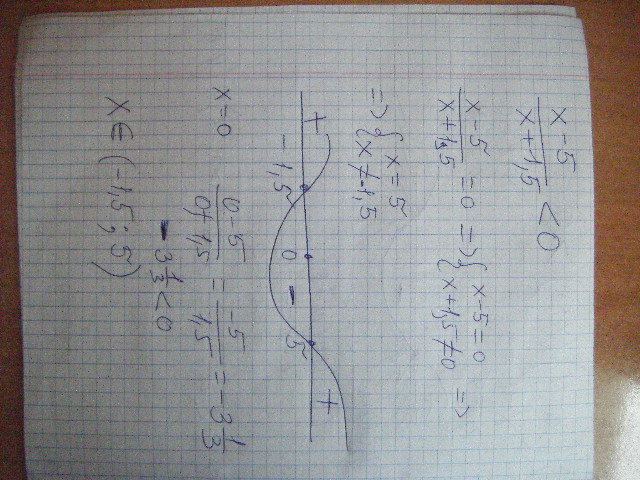 x-5/x+1,5 < 0
x-5/x+1,5 = 0 => { x-5=0 { x+1,5≠0 =>
=> { x=5 { x≠-1,5
+ - +
-1,5 0 5
x=0 0-5/0+1,5 = -5/1,5 = -3 1/3
-3 1/3 < 0
x∈(-1,5; 5)